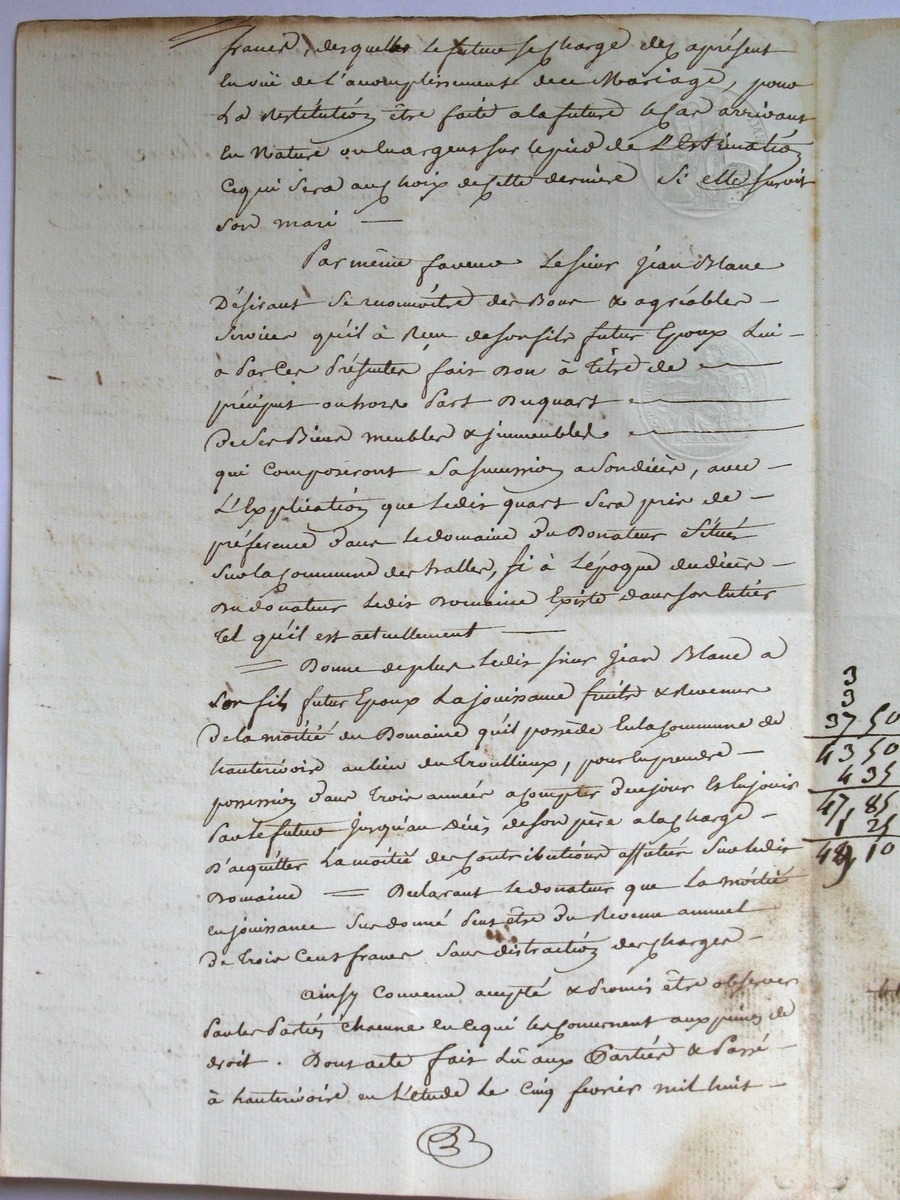 francs, desquelles le futur se charge dès aprésent
En vuë de l'accomplissement de ce Mariage, pour
La restitution être faite a la future le cas arrivant
En Nature ou En argent sur le pied de L'Estimation
Ce qui Sera au choix de cette derniere Si elle survit
Son mari —
Par même faveur Le Sieur Jean Blanc
Désirant Reconnoître des Bons & agréables —
Services qu'il à Reçu de son fils futur Epoux Lui —
a Par Ces Présentes fait Don à Titre de —
préciput ou hors Part Du quart —
De Ses Biens meubles & immeubles —
qui Composeront Sa succession a Son décès, avec —
L'Explication que Ledit quart Sera pris de —
préférence dans Le domaine du Donateur Situé
Sur la Commune des halles, Si à L'époque du décès —
Du donateur Ledit Domaine Existe dans Son Entier
Tel qu'il est actuellement —
= Donne de plus Ledit Sieur Jean Blanc a
Son fils futur Epoux La jouissance fruits & Revenus
De la moitié du Domaine qu'il possède En la Commune de
hauterivoire au lieu du Troullieux, pour En prendre —
possession dans Trois années a compter de ce jour Et En jouir
Par Le futur jusqu'au décès de son père a la Charge —
D'acquitter La moitié des Contributions affectées Sur Ledit
Domaine = Declarant Le donateur que La moitié
en jouissance Sus donné Peut être du Revenu annuel
De Trois Cent francs Sans distraction des Charges —
Ainsy Convenu accepté & Promis être observer
Par les Parties Chacune En ce qui les Concernent aux peines de
droit. Dont acte fait Lû aux Parties & Passé —
à hauterivoire en L'étude Le Cinq février mil huit —
3
3
37 50
43 50
4 35
47 85
1 25
49 10